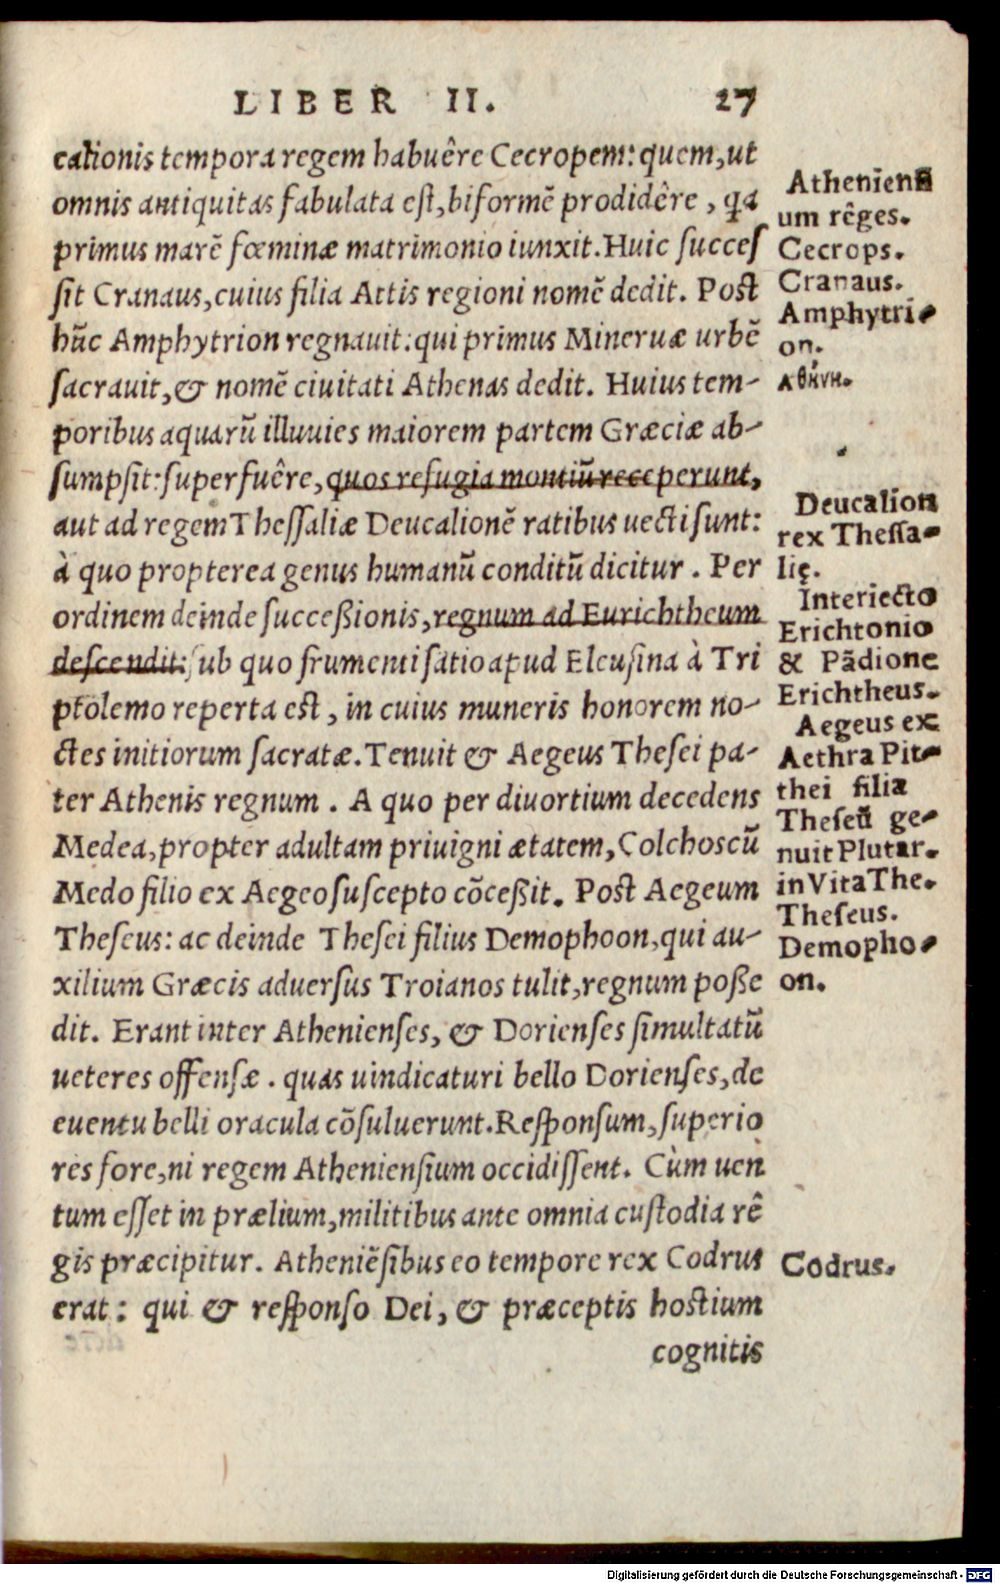 LIBER II. 27
cationis tempora regem habuêre Cecropem: quem, ut
omnis antiquitas fabulata est, biformē prodidêre, qa
primus marē fœminæ matrimonio iunxit. Huic succes
sit Cranaus, cuius filia Attis regioni nomē dedit. Post
hūc Amphytrion regnauit: qui primus Mineruæ urbē
sacrauit, & nomē ciuitati Athenas dedit. Huius tem-
poribus aquarū illuuies maiorem partem Græciæ ab-
sumpsit: superfuêre, quos refugia montiū receperunt,
aut ad regem Thessaliæ Deucalionē ratibus uecti sunt:
à quo propterea genus humanū conditū dicitur. Per
ordinem deinde successionis, regnum ad Eurichtheum
descendit: sub quo frumenti satio apud Eleusina à Tri
ptolemo reperta est, in cuius muneris honorem no-
ctes initiorum sacratæ. Tenuit & Aegeus Thesei pa-
ter Athenis regnum. A quo per diuortium decedens
Medea, propter adultam priuigni ætatem, Colchos cū
Medo filio ex Aegeo suscepto cōcessit. Post Aegeum
Theseus: ac deinde Thesei filius Demophoon, qui au-
xilium Græcis aduersus Troianos tulit, regnum posse
dit. Erant inter Athenienses, & Dorienses simultatū
ueteres offensæ. quas uindicaturi bello Dorienses, de
euentu belli oracula cōsuluerunt. Responsum, superio
res fore, ni regem Atheniensium occidissent. Cùm uen
tum esset in prælium, militibus ante omnia custodia rê
gis præcipitur. Atheniēsibus eo tempore rex Codrus
erat: qui & responso Dei, & præceptis hostium
cognitis
Atheniensi
um rêges.
Cecrops.
Cranaus.
Amphytri-
on.
ἀθήνη.
Deucalion
rex Thessa-
lię.
Interiecto
Erichtonio
& Pādione
Erichtheus.
Aegeus ex
Aethra Pit-
thei filia
Theseū ge-
nuit Plutar.
in Vita The.
Theseus.
Demopho-
on.
Codrus.
Digitalisierung gefördert durch die Deutsche Forschungsgemeinschaft - DFG